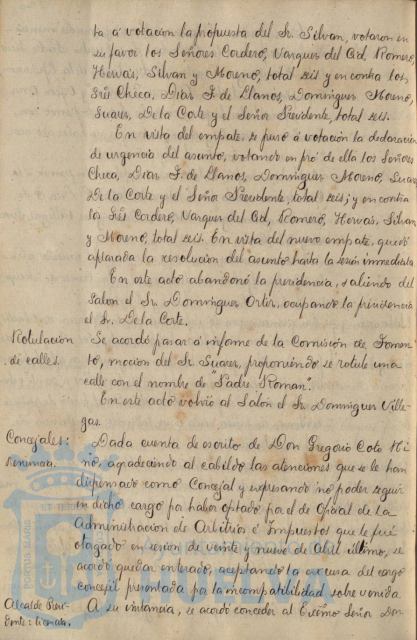 ta á votación la propuesta del Sr. Silván, votaron en
su favor los Señores Cordero, Vargues del Cid, Romero,
Hervás, Silván y Moreno, total seis y en contra los,
Sres Checa, Díaz F. de Llanos, Domínguez Moreno,
Suarez, De la Corte y el Señor Presidente, total seis.
En vista del empate, se puso á votación la declaración
de urgencia del asunto, votando en pró de ella los Señores
Checa, Díaz F. de Llanos, Domínguez Moreno, Suarez
De la Corte y el Señor Presidente, total seis; y en contra
los Sres Cordero, Vargues del Cid, Romero, Hervás, Silván
y Moreno, total seis. En vista del nuevo empate, quedó
aplazada la resolución del asunto hasta la sesión inmediata
En este acto abandonó la presidencia, saliendo del
Salón el Sr. Domínguez Ortiz, ocupando la presidencia
el Sr. De la Corte.
Rotulación
de calles.
Se acordó pasar á informe de la Comisión de Fomen-
to, moción del Sr. Suarez, proponiendo se rotule una
calle con el nombre de "Padre Román".
En este acto volvió al Salón el Sr. Domínguez Ville-
gas.
Concejales:
renuncia.
Dada cuenta de escrito de Don Gregorio Coto
agradeciendo al cabildo las atenciones que se le han
dispensado como Concejal y expresando no poder seguir
en dicho cargo por haber optado por el de Oficial de la
Administración de Arbitrios é Impuestos que le fué
otorgado en sesión de veinte y nueve de Abril último, se
acordó quedar enterado, aceptando la excusa del cargo
concejil presentada por la incompatibilidad sobrevenida.
Alcalde Presi-
dente: licencia.
A su instancia, se acordó conceder al Excmo Señor Don